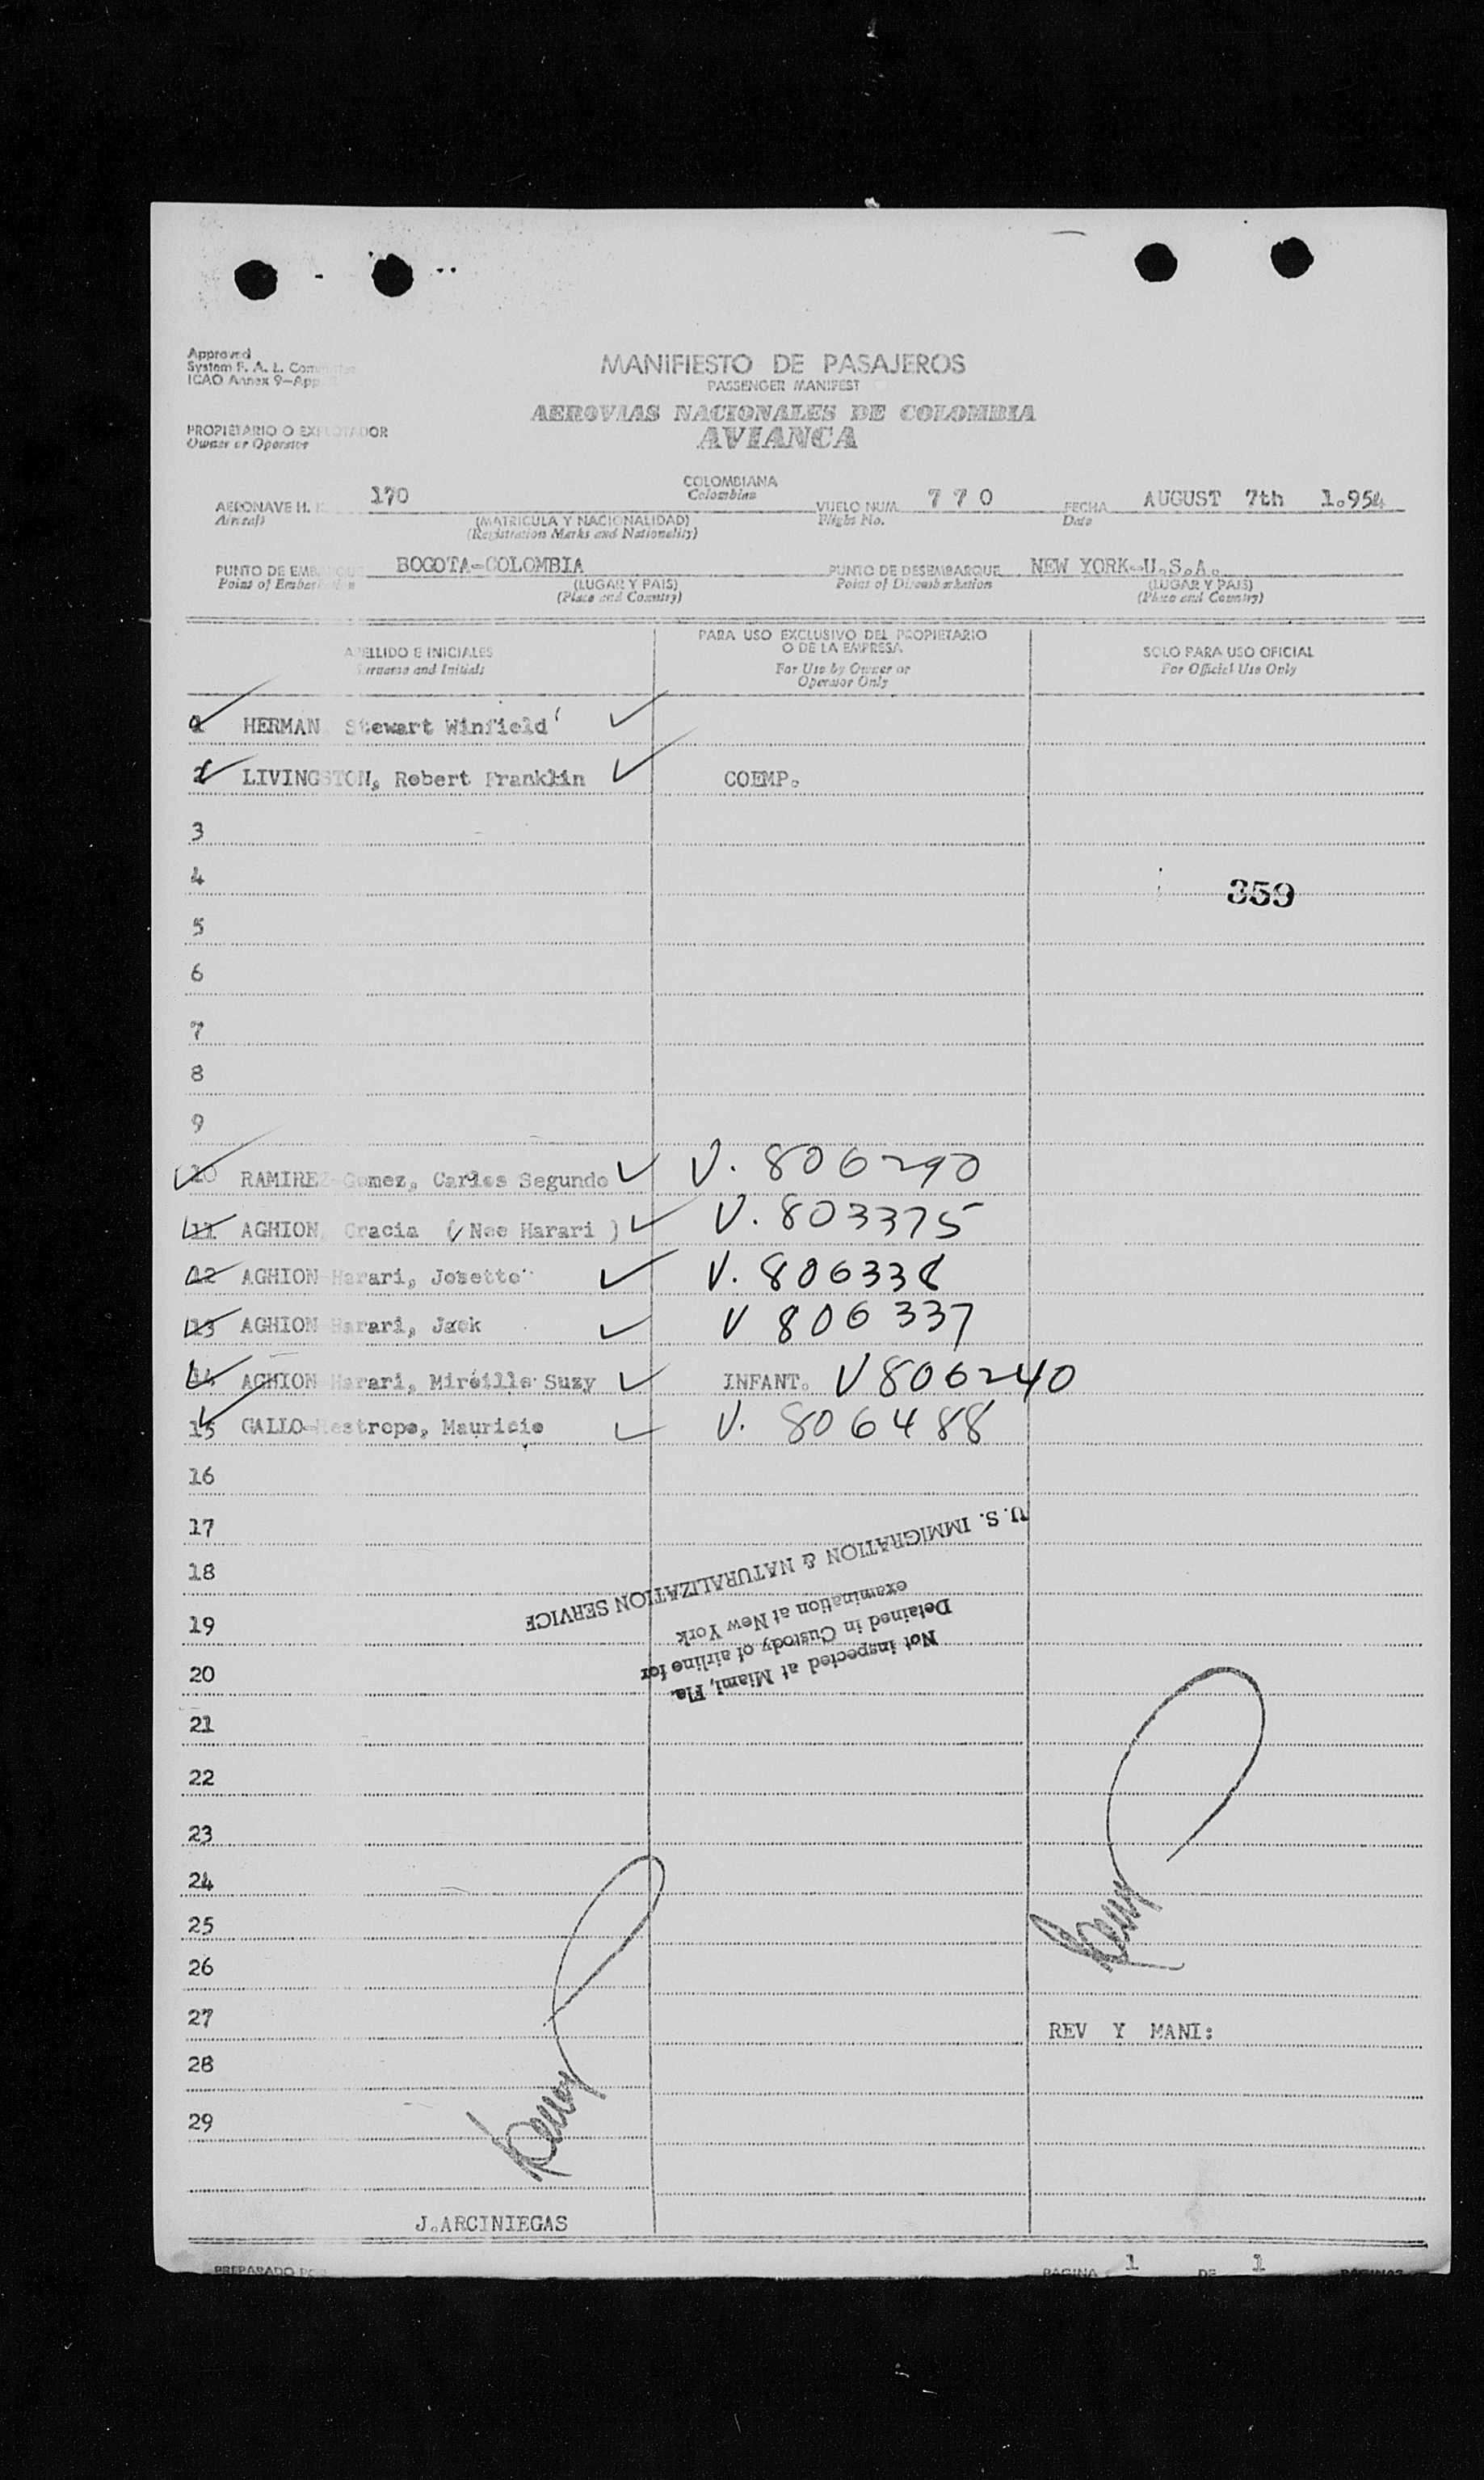 Approved
System F. A. L.
ICAO Annex 9—App.
MANIFIESTO DE PASAJEROS
PASSENGER MANIFEST
AEROVIAS NACIONALES DE COLOMBIA
AVIANCA
PROPIETARIO O EXPLOTADOR
Owner or Operator
AERONAVE H. 170 COLOMBIANA VUELO NUM. 7 7 0 FECHA AUGUST 7th 1.954
Aircraft Colombian Flight No. Date
(MATRICULA Y NACIONALIDAD)
(Registration Marks and Nationality)
PUNTO DE EMBARQUE BOGOTA-COLOMBIA PUNTO DE DESEMBARQUE NEW YORK-U.S.A.
Point of Embarkation (LUGAR Y PAIS) Point of Disembarkation (LUGAR Y PAIS)
(Place and Country) (Place and Country)
APELLIDO E INICIALES PARA USO EXCLUSIVO DEL PROPIETARIO O DE LA EMPRESA SOLO PARA USO OFICIAL
Surname and Initials For Use by Owner or Operator Only For Official Use Only
1 HERMAN Stewart Winfield
2 LIVINGSTON, Robert Franklin COEMP.
3
4 359
5
6
7
8
9
10 RAMIREZ-Gomez, Carlos Segundo V. 806290
11 AGHION, Gracia ( Nee Harari ) V. 803375
12 AGHION-Harari, Josette V. 806338
13 AGHION-Harari, Jack V 806337
14 AGHION-Harari, Mireille Suzy INFANT. V806240
15 GALLO-Restrepo, Mauricio V. 806488
16
17
18
19
20
21
22
23
24
25
26
27
28
29
Not inspected at Miami, Fla.
Detained in Custody of airline for
examination at New York
U.S. IMMIGRATION & NATURALIZATION SERVICE
REV Y MANI:
J.ARCINIEGAS
PREPARADO PAGINA 1 DE 1 PAGINAS